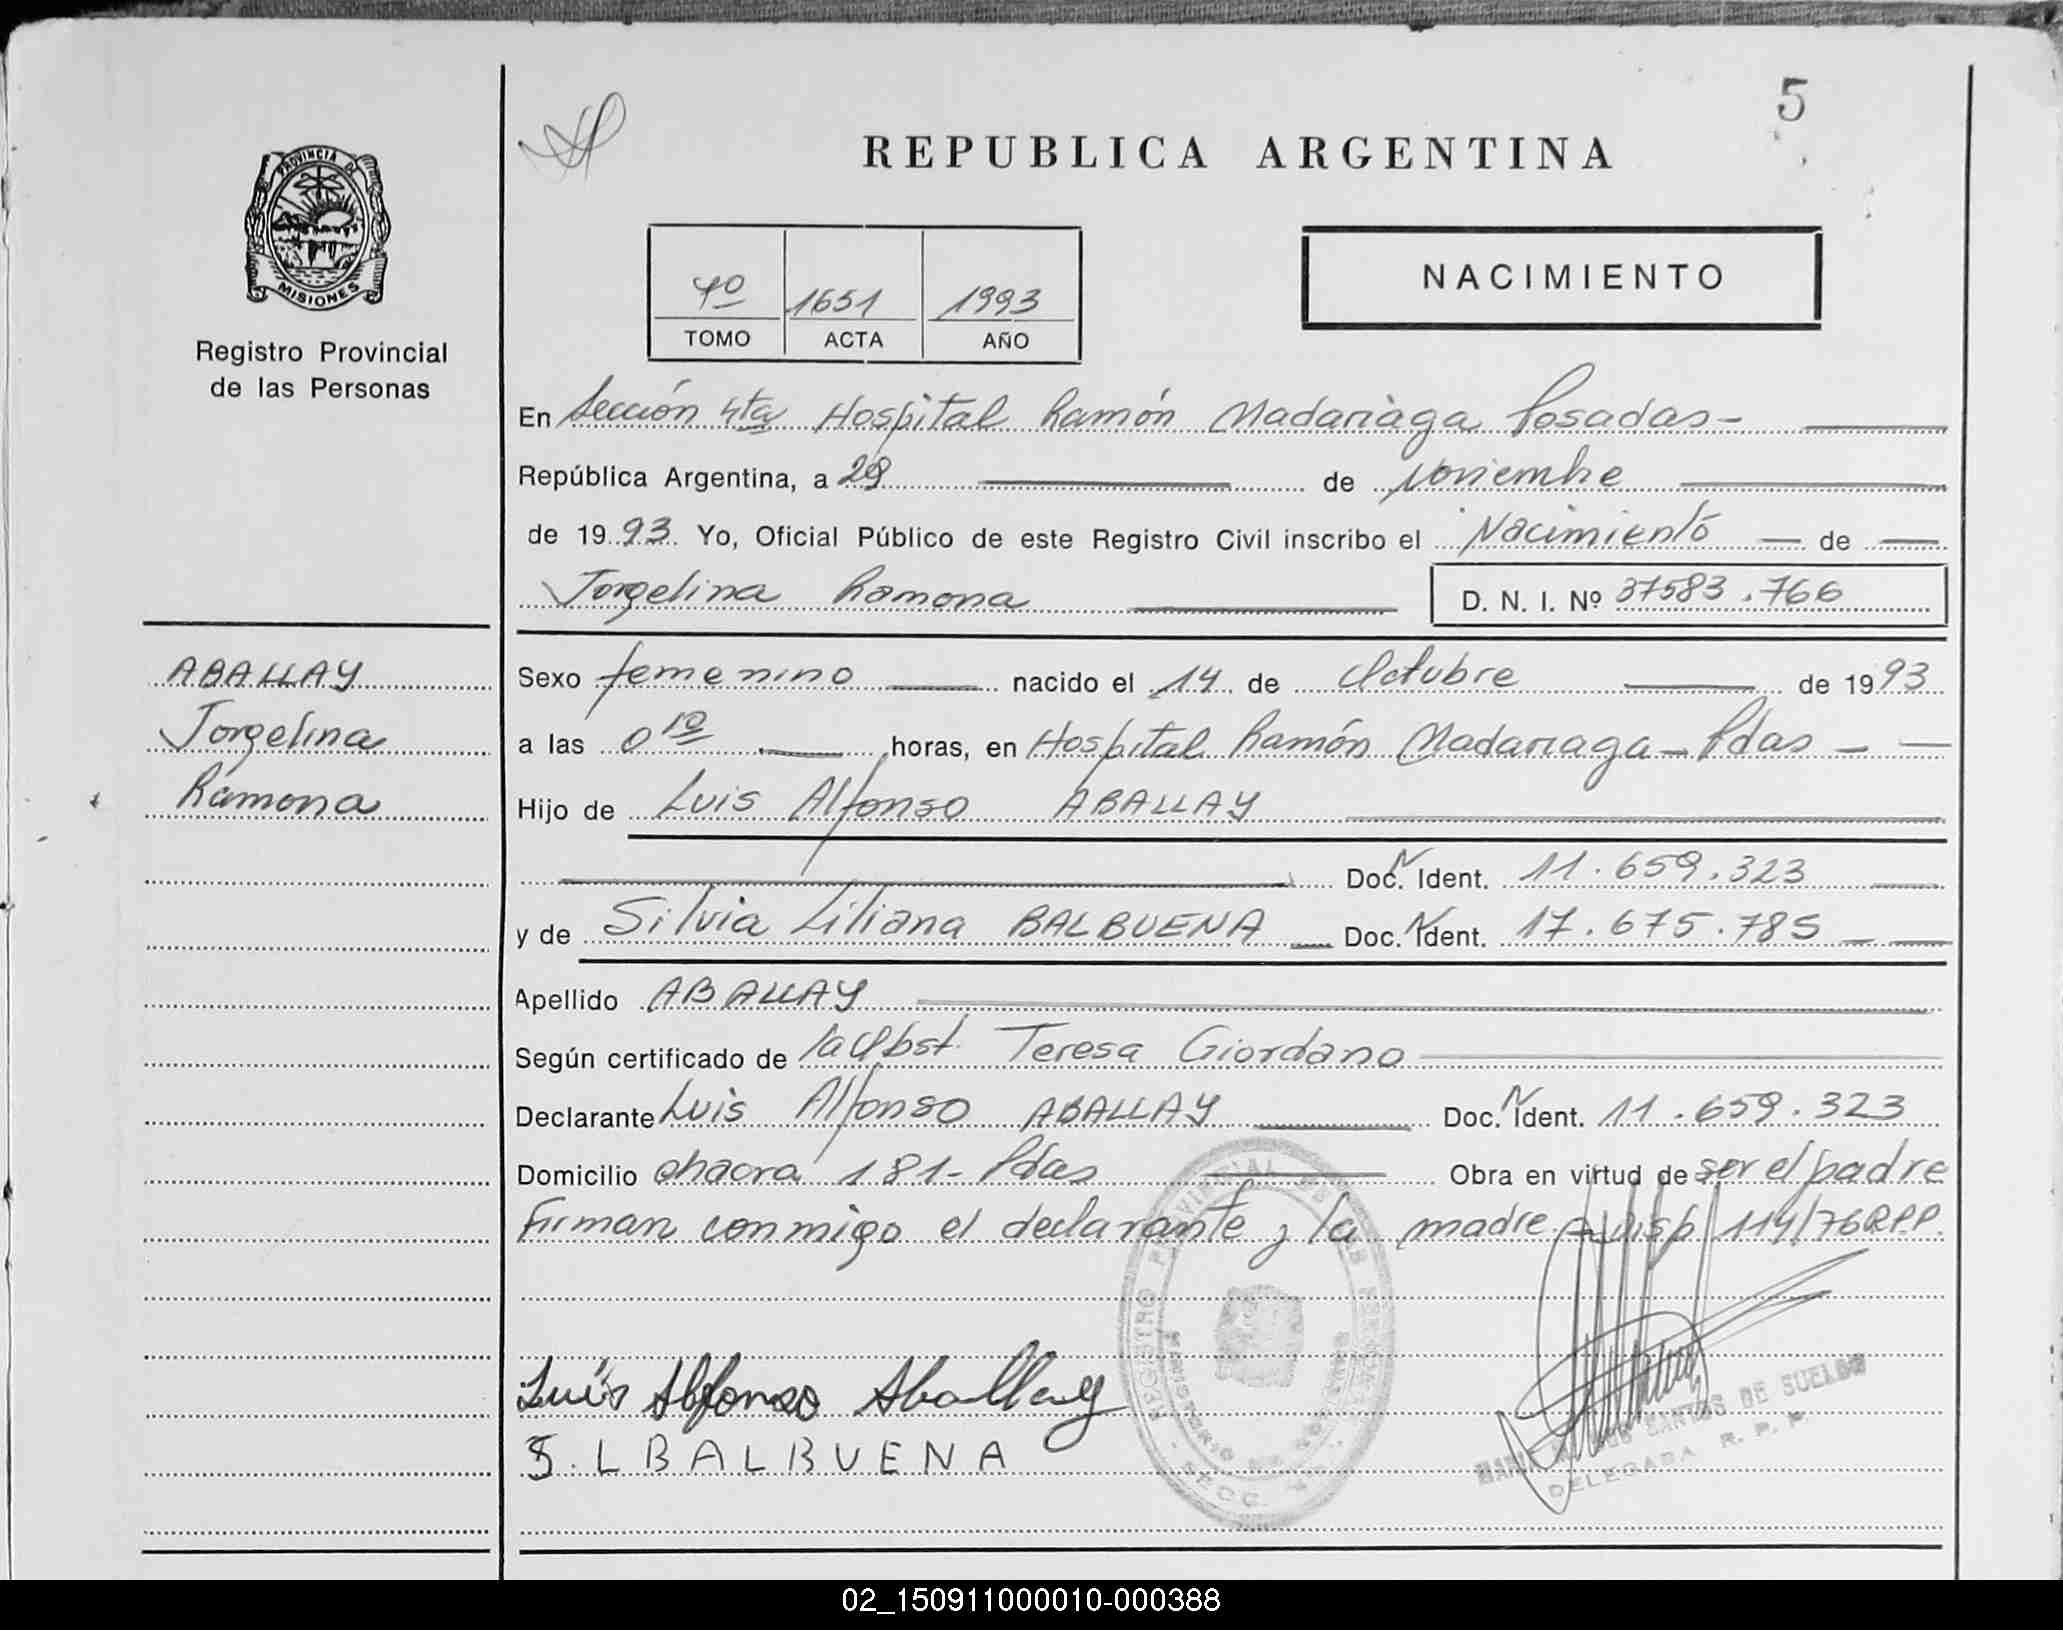 5
REPUBLICA ARGENTINA
PROVINCIA DE
MISIONES
Registro Provincial
de las Personas
1651 1993
TOMO ACTA AÑO
NACIMIENTO
En Sección 4ta Hospital Ramón Madariaga Posadas-
República Argentina, a 29 de Noviembre
de 1993 Yo, Oficial Público de este Registro Civil inscribo el Nacimiento de
Jorgelina Ramona D. N. I. Nº 37583.766
ABALLAY
Jorgelina
Ramona
Sexo femenino nacido el 14 de Octubre de 1993
a las 0 10 horas, en Hospital Ramón Madariaga - Pdas -
Hijo de Luis Alfonso ABALLAY
Doc. N Ident. 11.659.323
y de Silvia Liliana BALBUENA Doc. N Ident. 17.675.785
Apellido ABALLAY
Según certificado de la Obst. Teresa Giordano
Declarante Luis Alfonso ABALLAY Doc. N Ident. 11.659.323
Domicilio chacra 181- Pdas Obra en virtud de ser el padre
Firman conmigo el declarante y la madre - Disp 114/76 RPP.
Luis Alfonso Aballay
S. L BALBUENA
REGISTRO PROVINCIAL DE LAS PERSONAS
SECC. 4
SANTOS DE SUELDO
DELEGADA R. P. P.
02_150911000010-000388